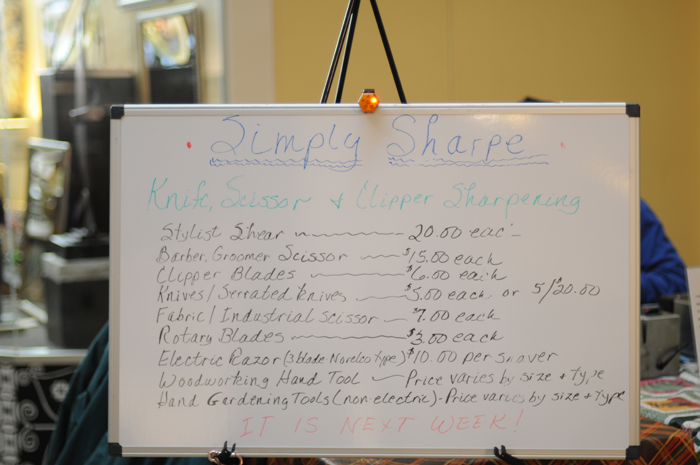 Simply Sharpe
Knife, Scissor & Clipper Sharpening
Stylist Shear 20.00 each
Barber, Groomer Scissor $15.00 each
Clipper Blades $6.00 each
Knives/Serrated knives $5.00 each or 5/$20.00
Fabric/Industrial scissor $7.00 each
Rotary Blades $3.00 each
Electric Razor (3 blade Norelco type) $10.00 per shaver
Woodworking Hand Tool Price varies by size + type
Hand Gardening Tools (non-electric) - Price varies by size + type
IT IS NEXT WEEK!